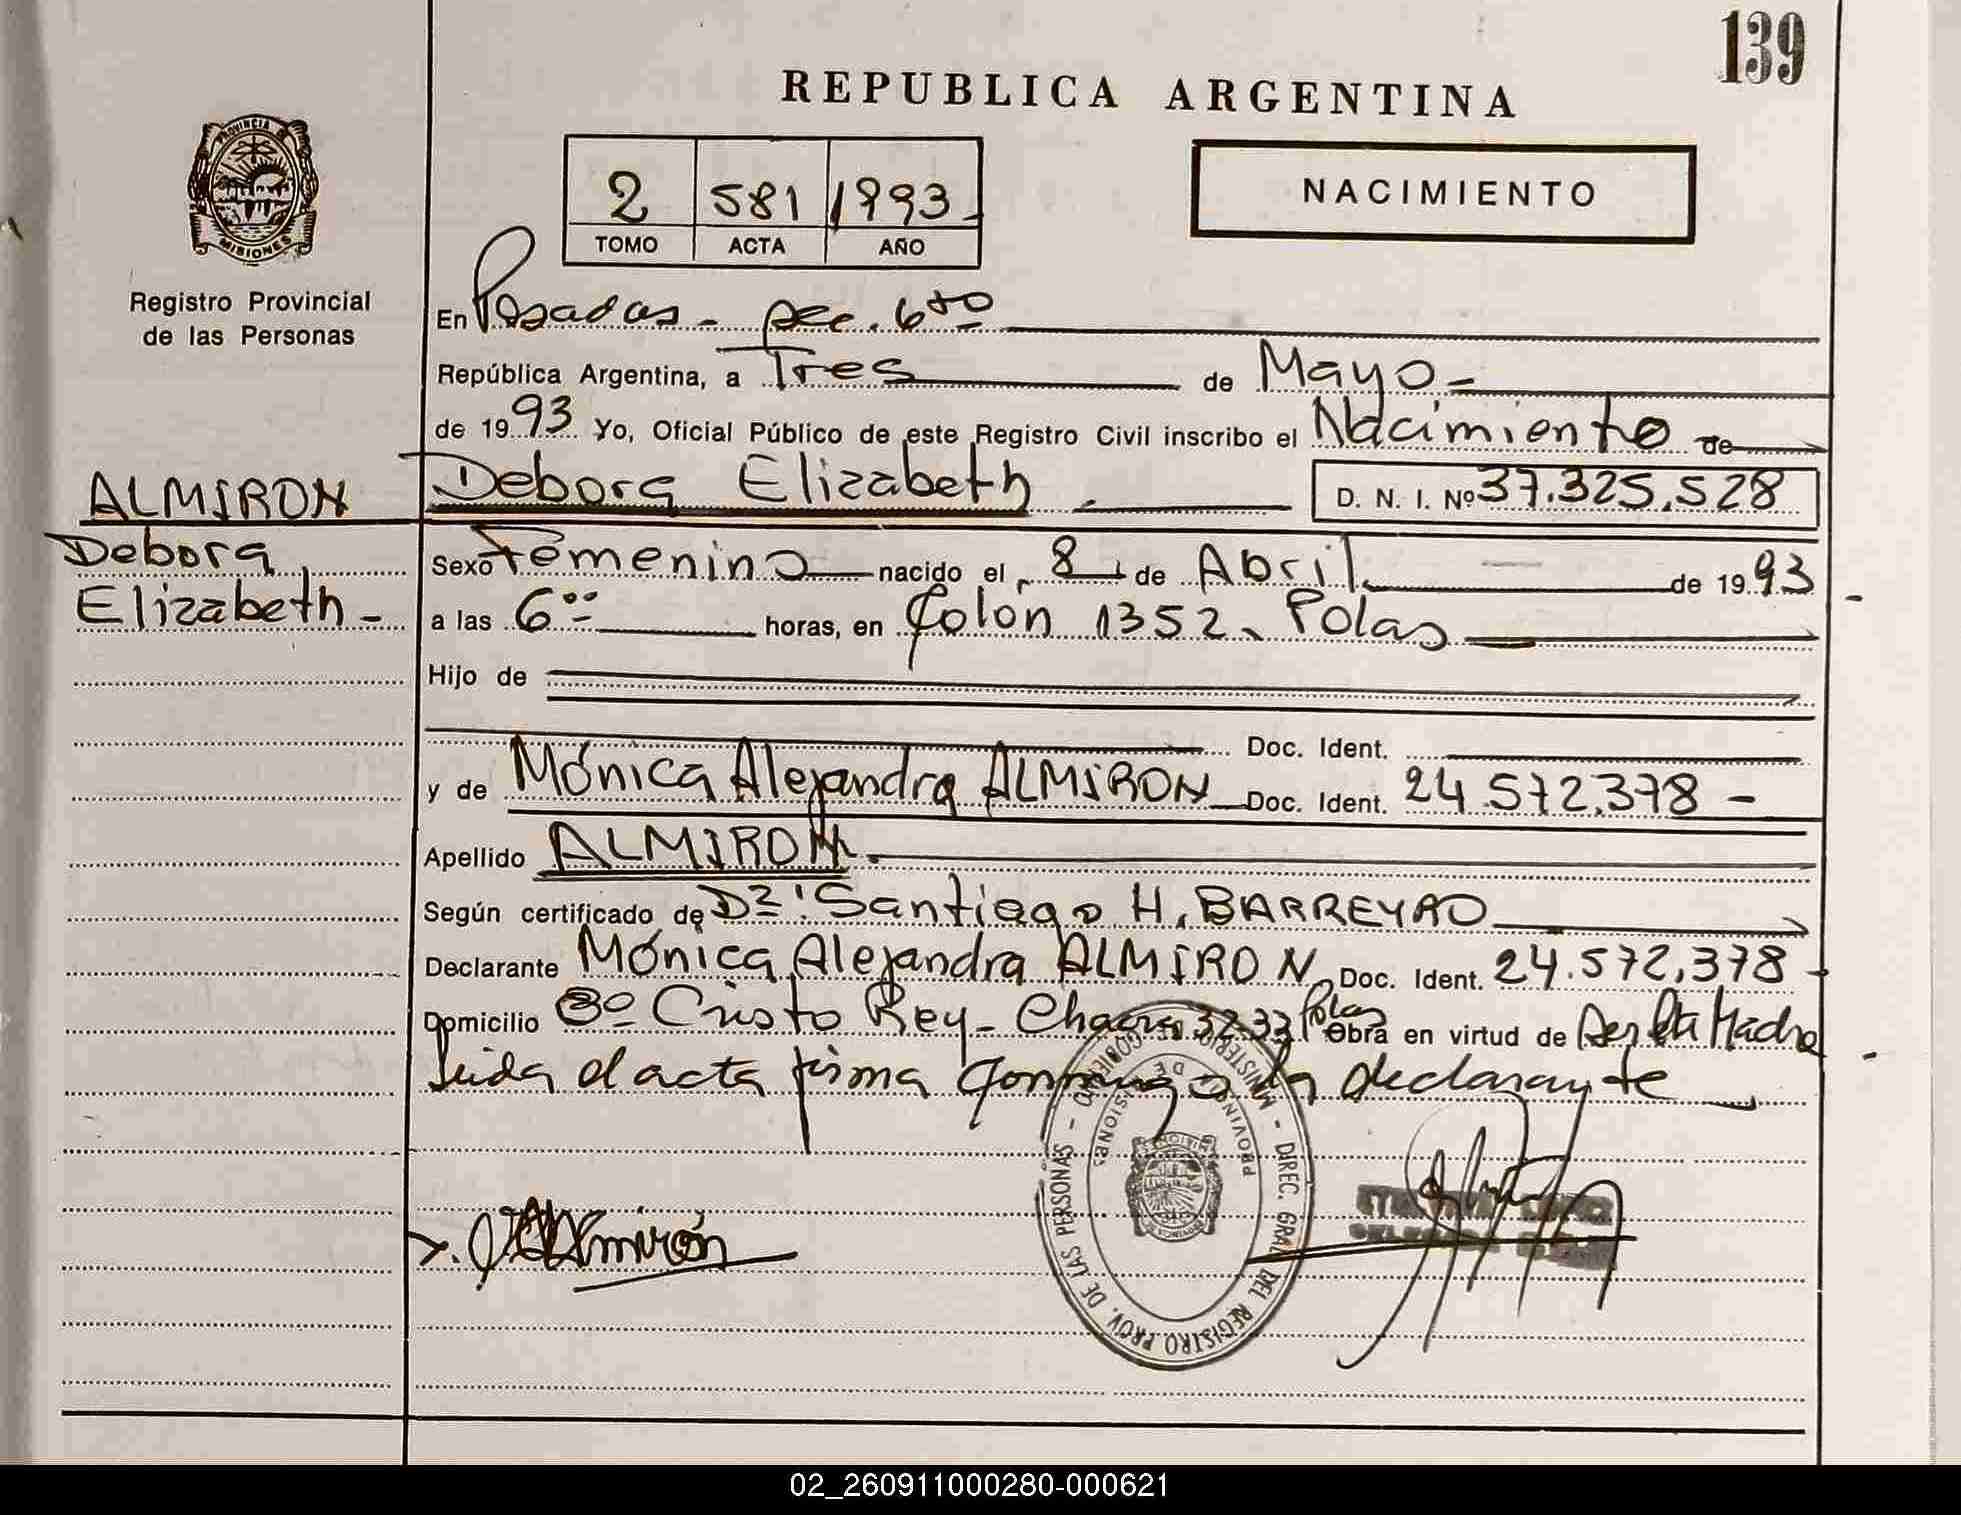 139
REPUBLICA ARGENTINA
PROVINCIA DE
MISIONES
2 581 1993
TOMO ACTA AÑO
NACIMIENTO
Registro Provincial
de las Personas
En Posadas - sec. 6ta
República Argentina, a Tres de Mayo -
de 1993 Yo, Oficial Público de este Registro Civil inscribo el Nacimiento de
ALMIRON
Debora
Elizabeth -
Debora Elizabeth D. N. I. Nº 37.325.528
Sexo Femenino nacido el 8 de Abril de 1993
a las 6⁰⁰ horas, en Colón 1352 - Pdas
Hijo de
Doc. Ident.
y de Mónica Alejandra ALMIRON Doc. Ident. 24.572.378 -
Apellido ALMIRON.
Según certificado de Dr: Santiago H. BARREYRO
Declarante Mónica Alejandra ALMIRON Doc. Ident. 24.572.378 -
Domicilio Bº Cristo Rey - Chacra 32-33 Pdas Obra en virtud de Ser la Madre
Leida el acta firma conmigo la declarante
MINISTERIO DE GOBIERNO - DIREC. GRAL. DEL REGISTRO PROV. DE LAS PERSONAS -
PROVINCIA DE MISIONES
Almirón
02_260911000280-000621